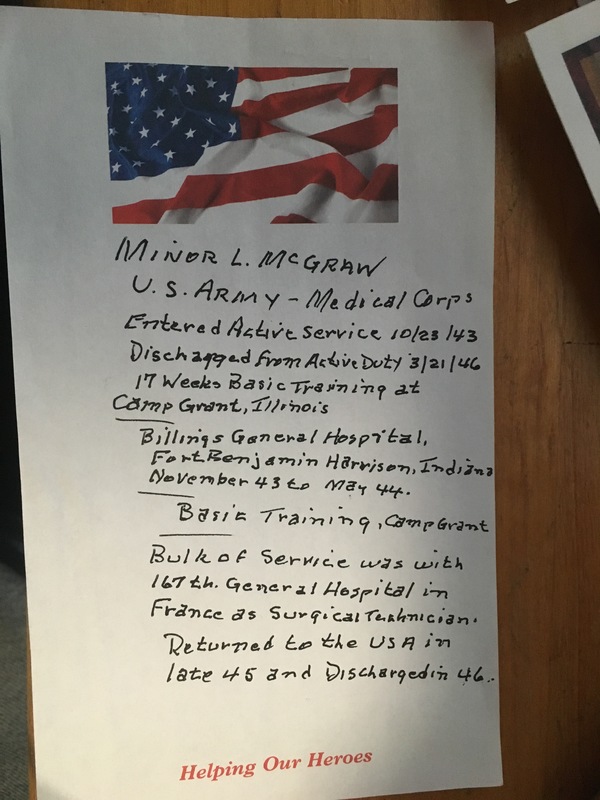 MINOR L. McGRAW
U.S. ARMY - Medical Corps
Entered Active Service 10/23/43
Dischagged from Active Duty 3/21/46
17 Weeks Basic Training at
Camp Grant, Illinois
Billings General Hospital,
Fort Benjamin Harrison, Indiana
November 43 to May 44.
Basic Training, Camp Grant
Bulk of Service was with
167th. General Hospital in
France as Surgical Technician.
Returned to the USA in
late 45 and Discharged in 46.
Helping Our Heroes